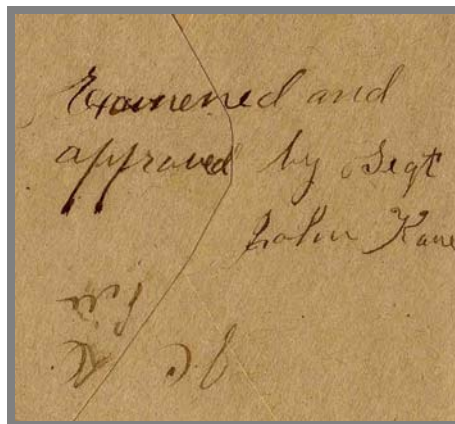 Examened and
approved by Segt
John Kane